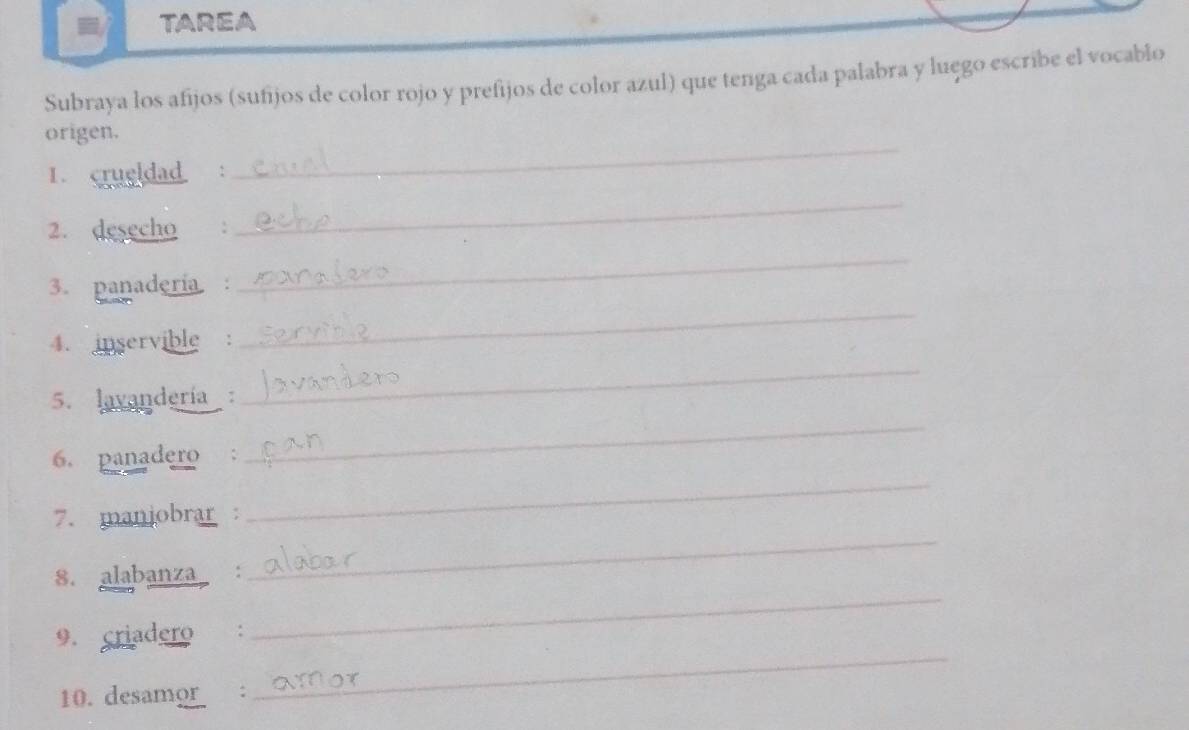 TAREA
Subraya los afijos (sufijos de color rojo y prefijos de color azul) que tenga cada palabra y luego escribe el vocablo
origen.
1. crueldad : cruel
2. desecho : echo
3. panadería : panadero
4. inservible : servible
5. lavandería : lavandero
6. panadero : pan
7. maniobrar :
8. alabanza : alabar
9. criadero :
10. desamor : amor